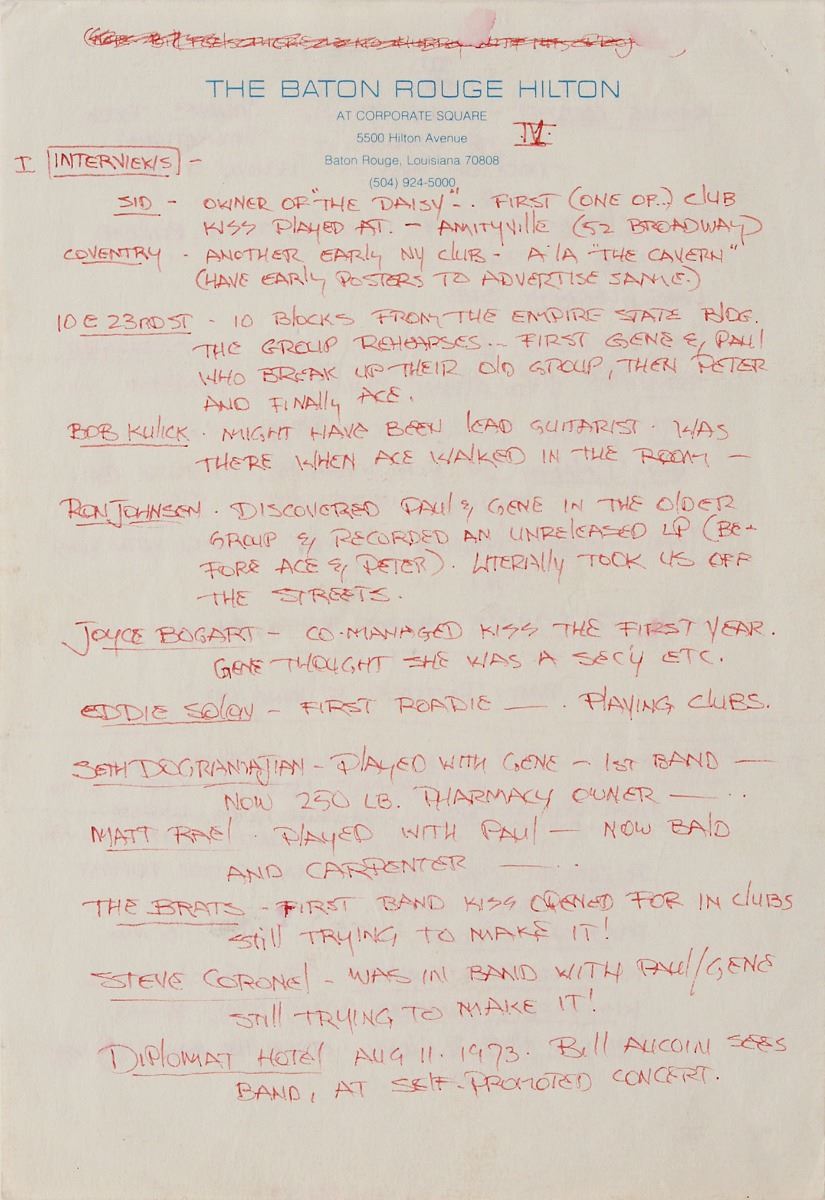 THE BATON ROUGE HILTON
AT CORPORATE SQUARE
5500 Hilton Avenue
Baton Rouge, Louisiana 70808
(504) 924-5000
IV
I INTERVIEWS -
SID - OWNER OF "THE DAISY".. FIRST (ONE OF..) CLUB
KISS PLAYED AT. - AMITYVILLE (52 BROADWAY)
COVENTRY - ANOTHER EARLY NY CLUB - A'LA "THE CAVERN"
(HAVE EARLY POSTERS TO ADVERTISE SAME.)
10 E 23RD ST - 10 BLOCKS FROM THE EMPIRE STATE BLDG.
THE GROUP REHEARSES... FIRST GENE & PAUL
WHO BREAK UP THEIR OLD GROUP, THEN PETER
AND FINALLY ACE.
BOB KULICK. MIGHT HAVE BEEN LEAD GUITARIST. WAS
THERE WHEN ACE WALKED IN THE ROOM -
RON JOHNSEN. DISCOVERED PAUL & GENE IN THE OLDER
GROUP & RECORDED AN UNRELEASED LP (BE-
FORE ACE & PETER). LITERALLY TOOK US OFF
THE STREETS.
JOYCE BOGART - CO-MANAGED KISS THE FIRST YEAR.
GENE THOUGHT SHE WAS A SEC'Y ETC.
EDDIE SOLAN - FIRST ROADIE — . PLAYING CLUBS.
SETH DOGRAMAJIAN - PLAYED WITH GENE - 1ST BAND —
NOW 250 LB. PHARMACY OWNER — . .
MATT RAEL. PLAYED WITH PAUL — NOW BALD
AND CARPENTER — . .
THE BRATS - FIRST BAND KISS OPENED FOR IN CLUBS
STILL TRYING TO MAKE IT!
STEVE CORONEL - WAS IN BAND WITH PAUL/GENE
STILL TRYING TO MAKE IT!
DIPLOMAT HOTEL AUG 11. 1973. BILL AUCOIN SEES
BAND, AT SELF-PROMOTED CONCERT.